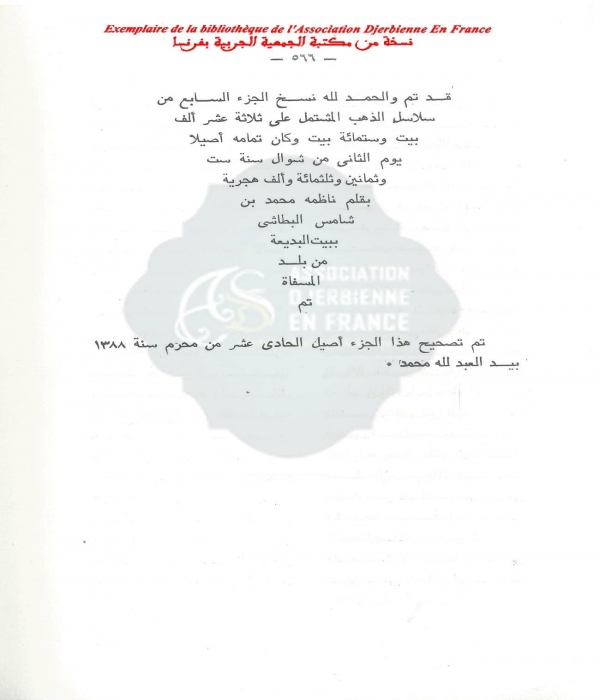 Exemplaire de la bibliothèque de l'Association Djerbienne En France
نسخة من مكتبة الجمعية الجربية بفرنسا
— ٥٦٦ —
قد تم والحمد لله نسخ الجزء السابع من
سلاسل الذهب المشتمل على ثلاثة عشر ألف
بيت وستمائة بيت وكان تمامه أصيلا
يوم الثانى من شوال سنة ست
وثمانين وثلثمائة وألف هجرية
بقلم ناظمه محمد بن
شامس البطاشى
ببيت البديعة
من بلد
المسفاة
تم
ASSOCIATION
DJERBIENNE
EN FRANCE
تم تصحيح هذا الجزء أصيل الحادى عشر من محرم سنة ١٣٨٨
بيد العبد لله محمد ٠